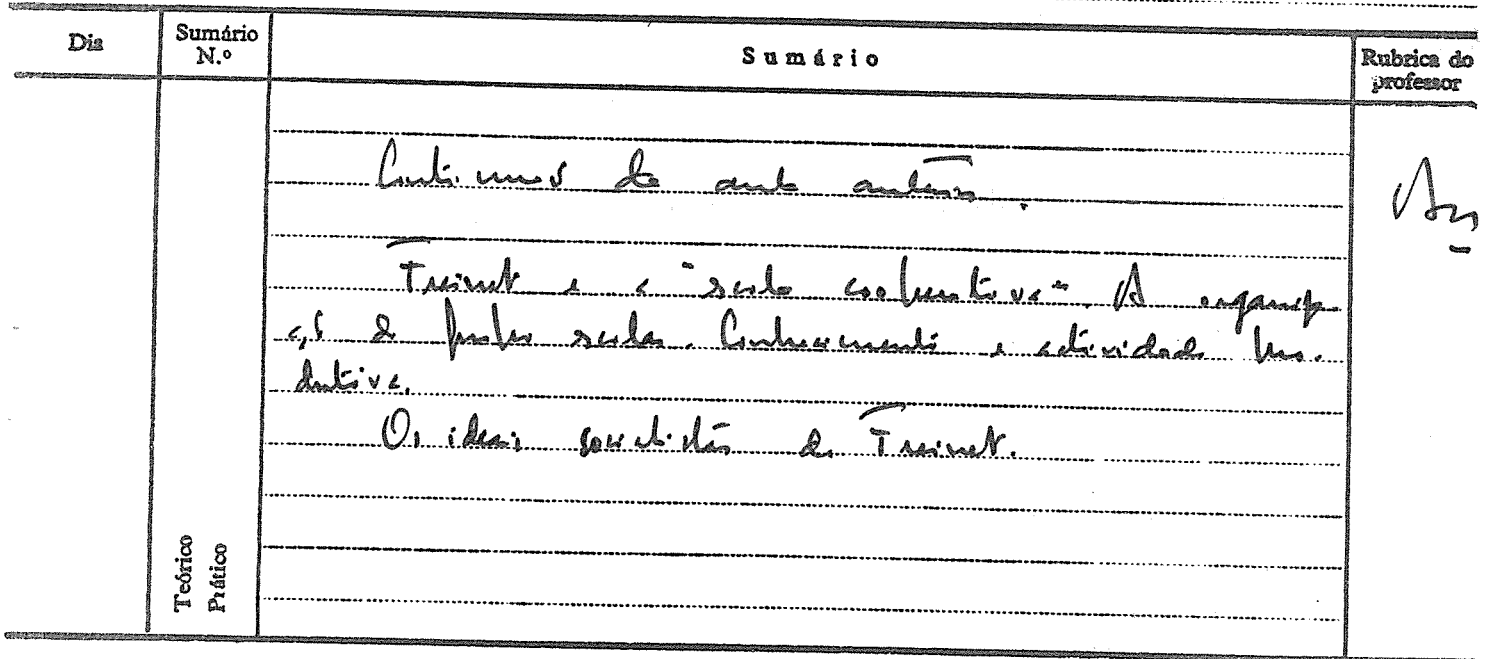 Dia
Sumário N.º
Sumário
Rubrica do professor
Continuação da aula anterior.
Freinet e a "escola cooperativa". A organiza-
ção da escola. Conhecimento e actividade pro-
dutiva.
Os ideais socialistas de Freinet.
Teórico
Prático